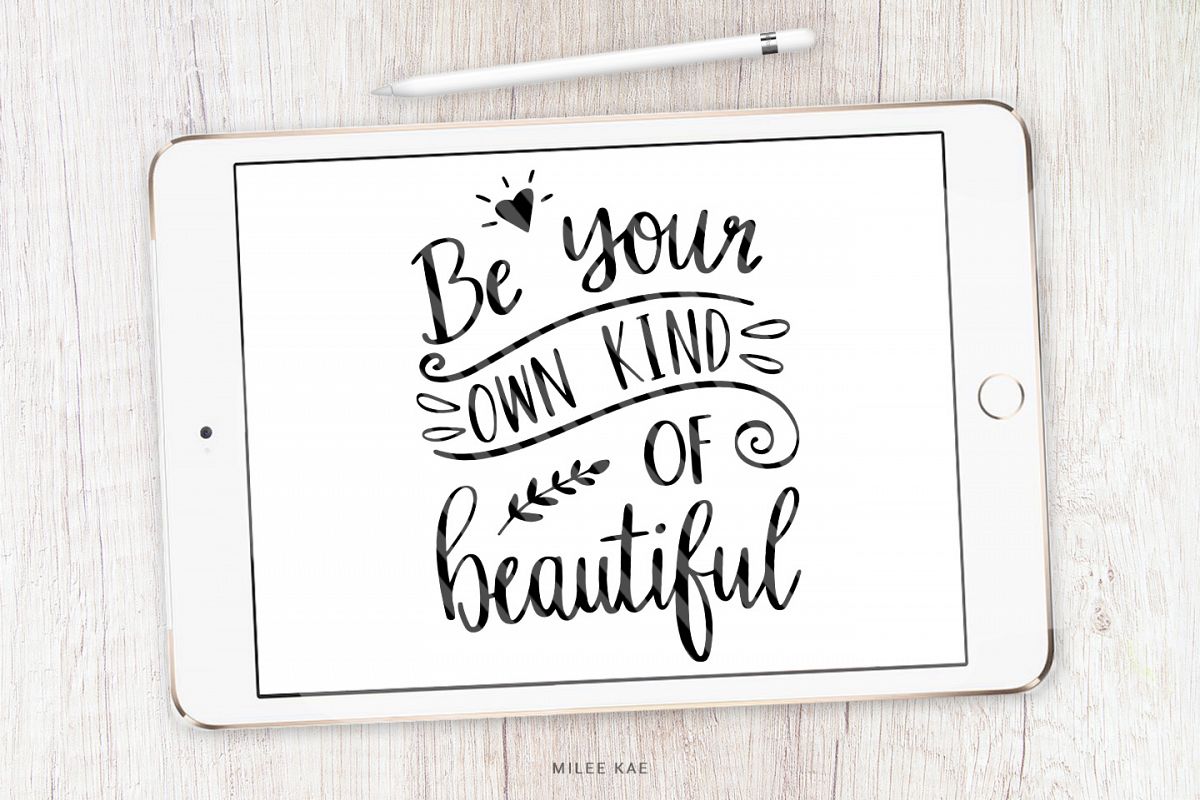 Be your
OWN KIND
OF
beautiful
MILEE KAE